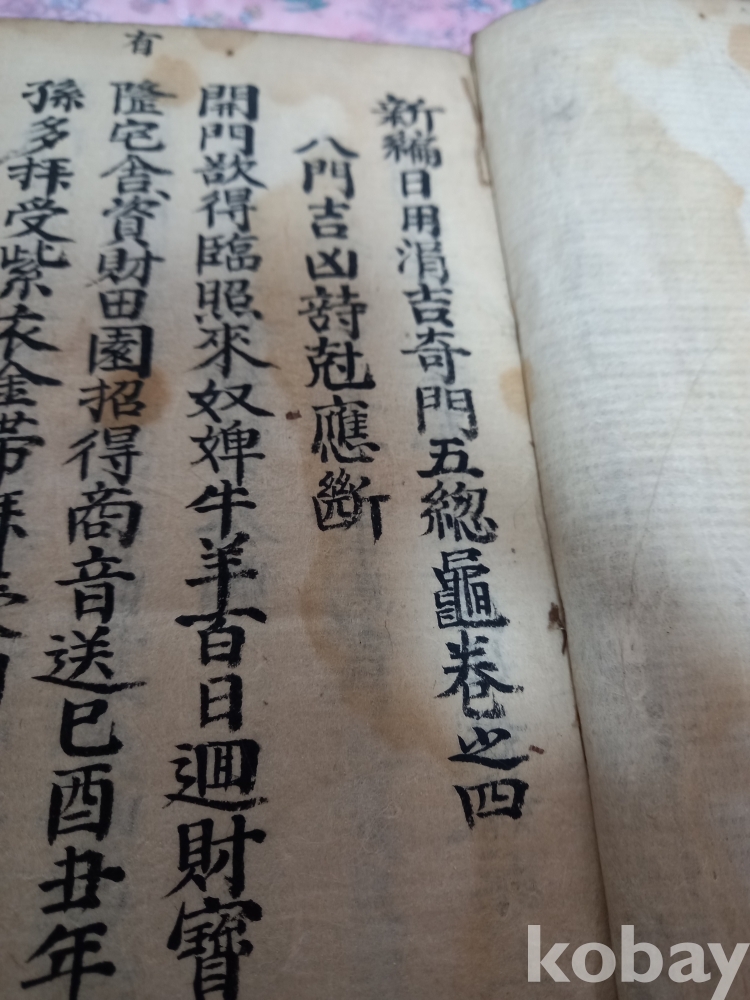 新編日用涓吉奇門五總龜卷之四
八門吉凶詩尅應斷
開門欲得臨照來奴婢牛羊百日迴財寶
有
隆宅舍資財田園招得商音送巳酉丑年
孫多拜受紫衣金帶拜
kobay